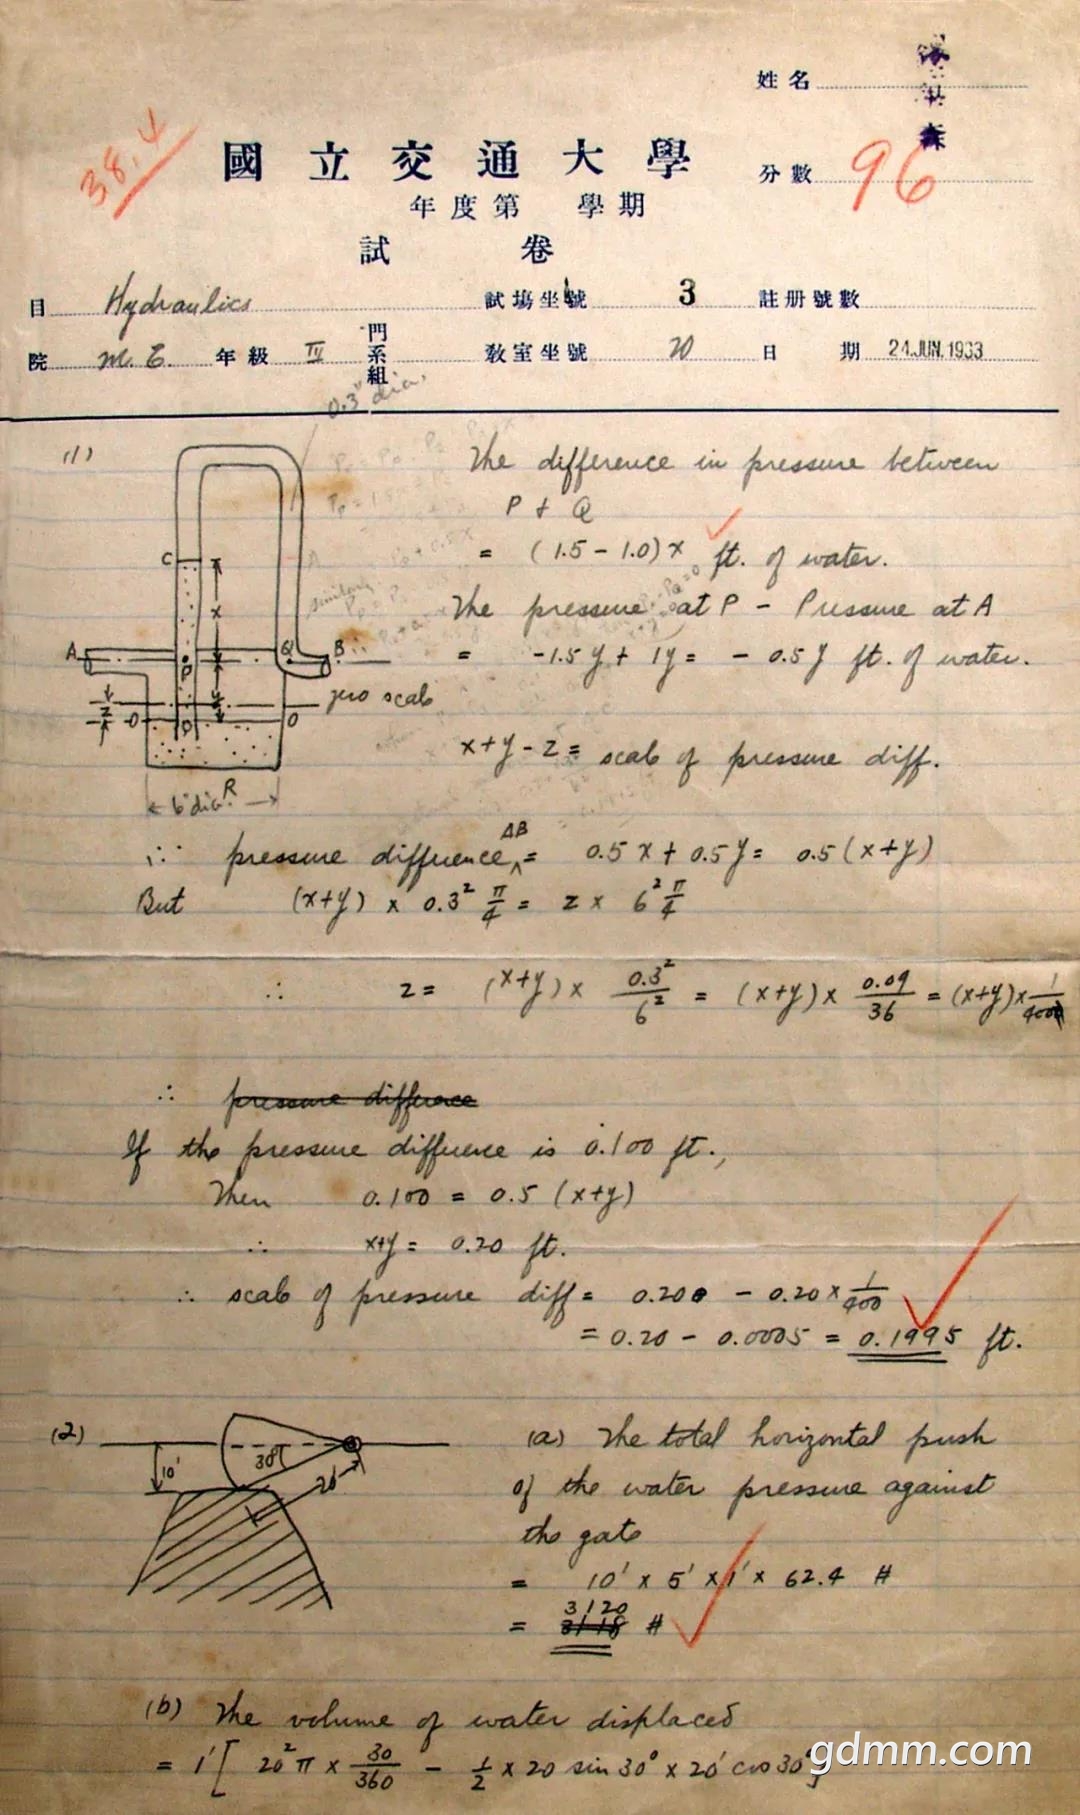 姓名
38.4
國立交通大學
分數 96
年度第 學期
試 卷
目 Hydraulics 試場坐號 3 註册號數
院 M. E. 年級 IV 門系組 教室坐號 20 日期 24.JUN.1933
0.3" dia.
(1)
The difference in pressure between
P + Q
= (1.5 - 1.0)x ft. of water.
The pressure at P - Pressure at A
= -1.5y + 1y = - 0.5y ft. of water.
C
x
A
P
Q
B
y
zero scale
z
O
O
6" dia.
R
x+y-z = scale of pressure diff.
∴ pressure difference AB = 0.5x + 0.5y = 0.5(x+y)
But (x+y) x 0.3² π/4 = z x 6² π/4
∴ z = (x+y) x 0.3²/6² = (x+y) x 0.09/36 = (x+y) x 1/400
∴ pressure difference
If the pressure difference is 0.100 ft.,
Then 0.100 = 0.5 (x+y)
∴ x+y = 0.20 ft.
∴ scale of pressure diff = 0.200 - 0.20 x 1/400
= 0.20 - 0.0005 = 0.1995 ft.
(2)
10'
30°
20'
(a) The total horizontal push
of the water pressure against
the gate
= 10' x 5' x 1' x 62.4 #
= 3120 #
(b) The volume of water displaced
= 1' [ 20² π x 30/360 - 1/2 x 20 sin 30° x 20' cos 30° ]
gdmm.com